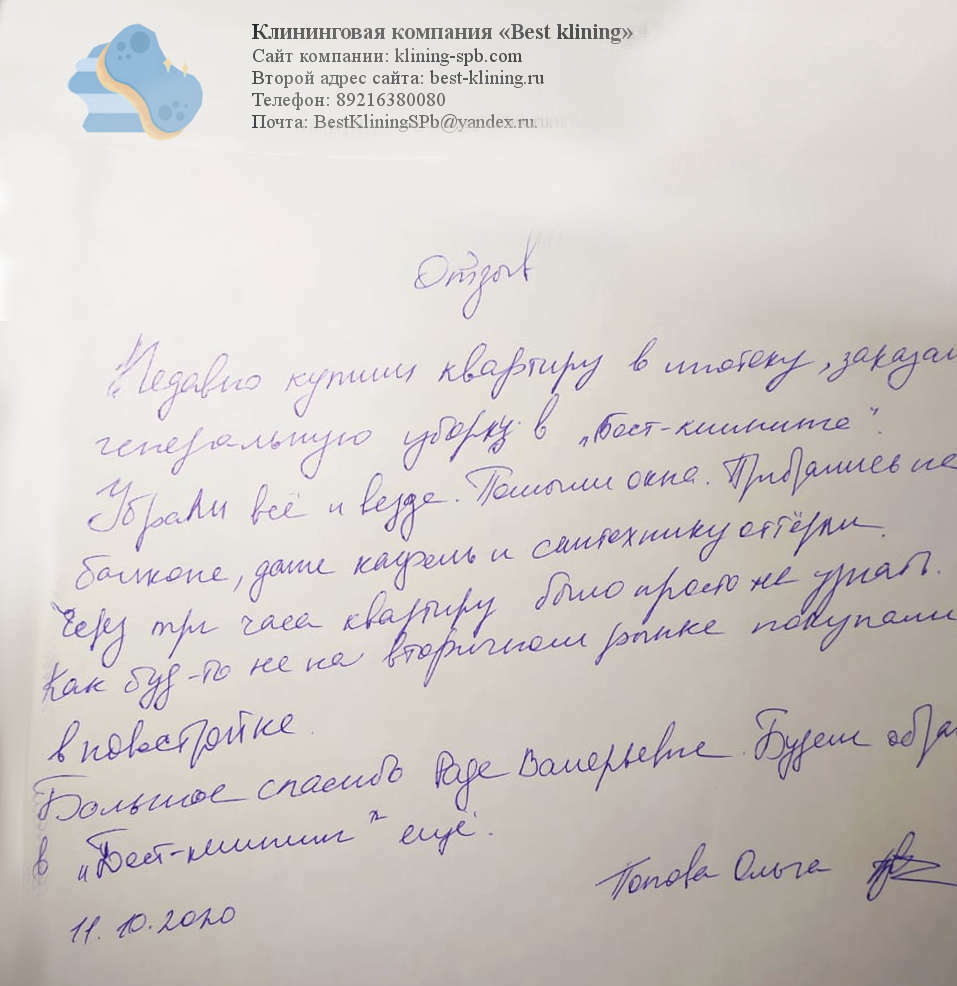 Клининговая компания «Best klining»
Сайт компании: klining-spb.com
Второй адрес сайта: best-klining.ru
Телефон: 89216380080
Почта: BestKliningSPb@yandex.ru
Отзыв
Недавно купили квартиру в ипотеку, заказал
генеральную уборку в „Бест-клининге".
Убрали всё и везде. Помыли окна. Прибрались на
балконе, даже кафель и сантехнику оттёрли.
Через три часа квартиру было просто не узнать.
Как буд-то не на вторичном рынке покупали
в новостройке.
Большое спасибо Раде Валерьевне. Будем обра
в „Бест-клининг" ещё.
Попова Ольга
11.10.2020